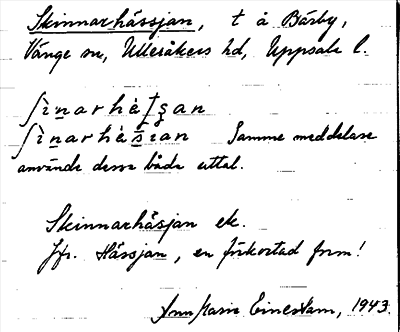 Skinnarhässjan, t å Bärby,
Vänge sn, Ulleråkers hd, Uppsala l.
Samme meddelare
använde dessa båda uttal.
Skinnarhäsjan ek.
Jfr. Hässjan, en förkortad form!
Ann Marie Einestam, 1943.